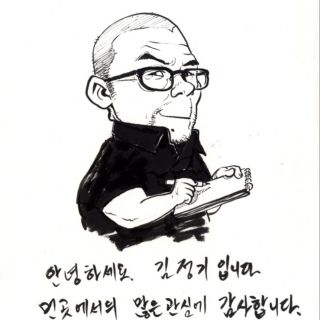 안녕하세요. 김정기 입니다.
먼곳에서의 많은관심에 감사합니다.